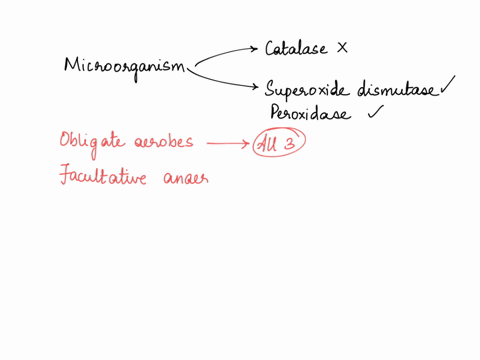 Microorganism
Catalase X
Superoxide dismutase ✓
Peroxidase ✓
Obligate aerobes → All 3
Facultative anaer